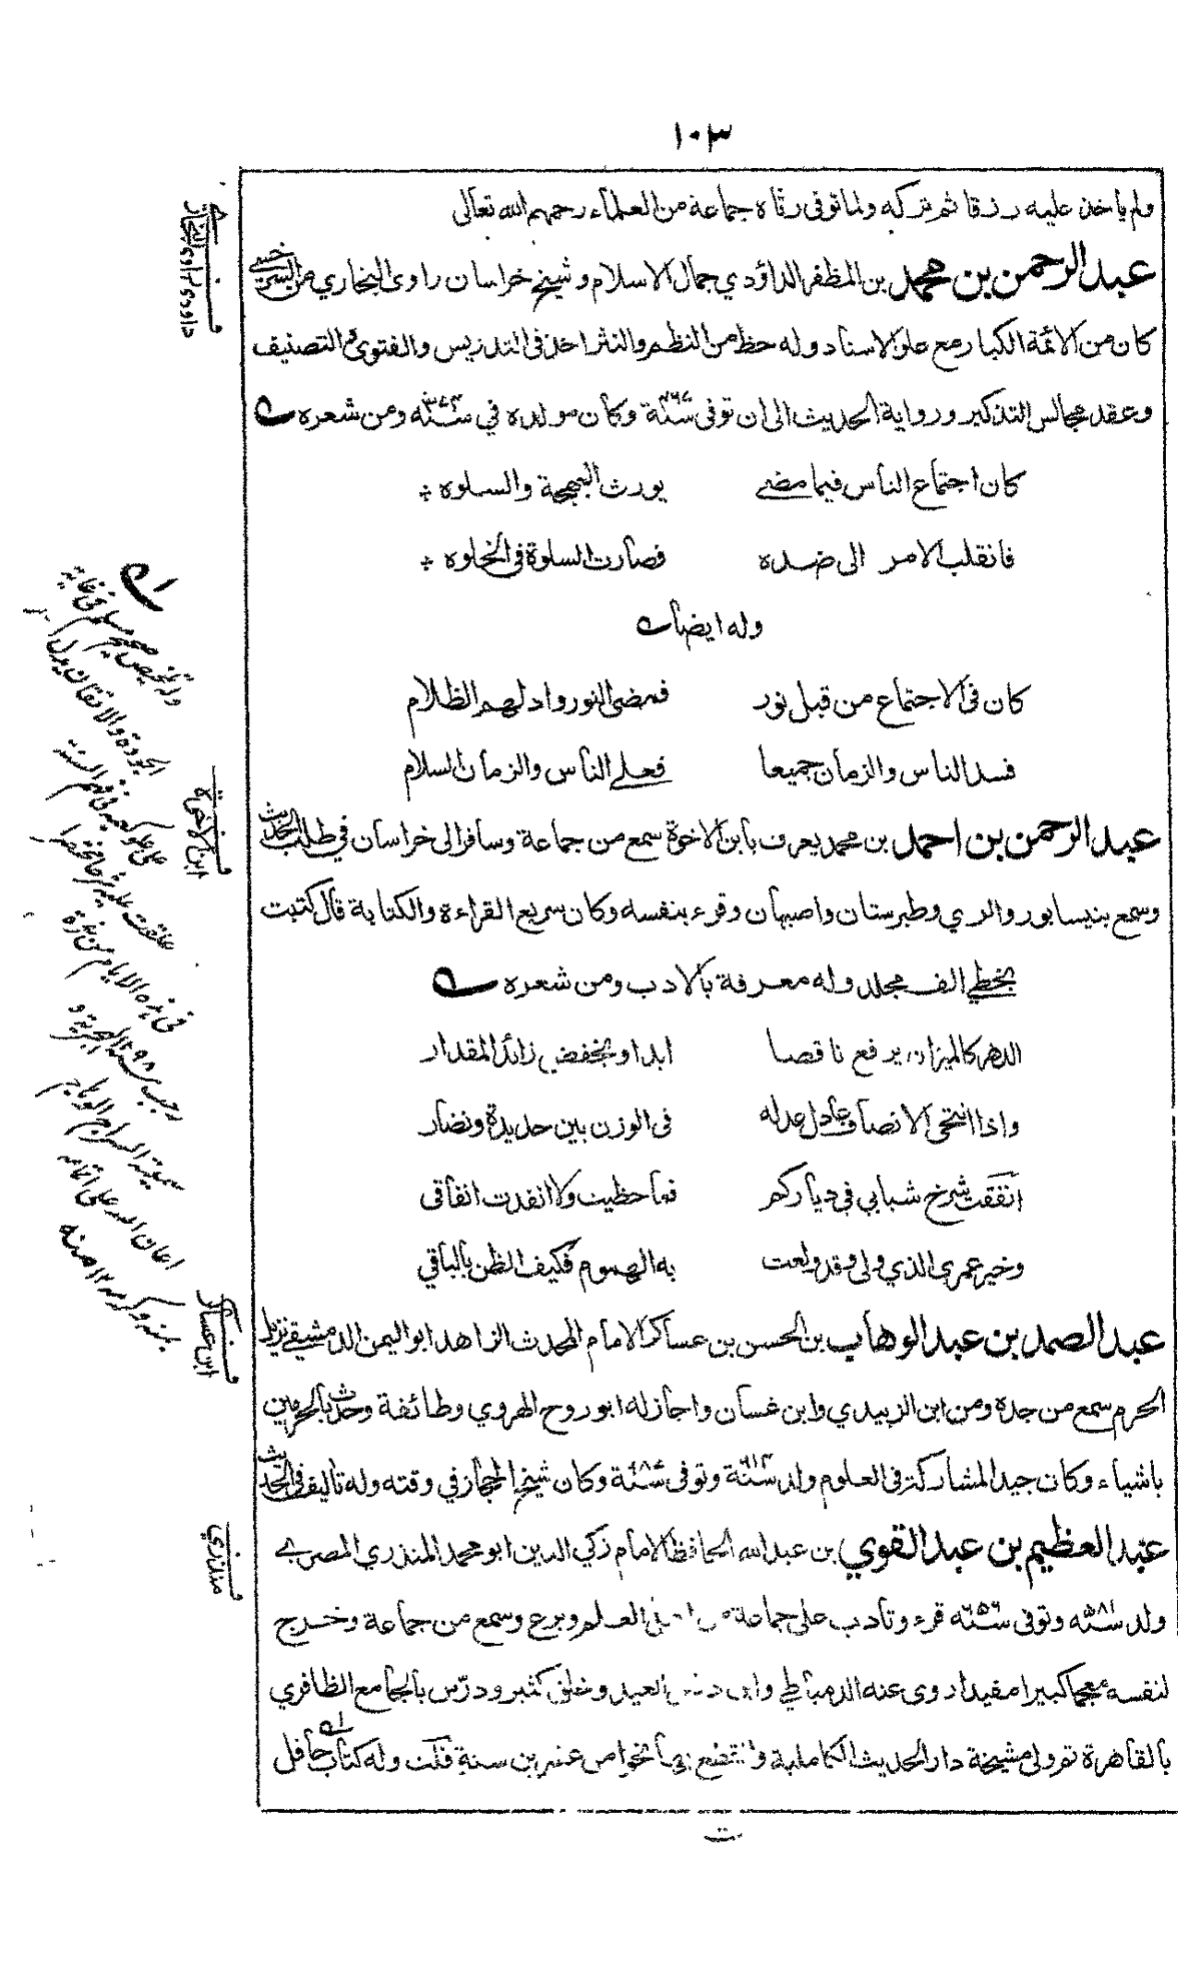 ١٠٣
ولم ياخذ عليه رزقا ثم تركه ولما توفى رثاه جماعة من العلماء رحمهم الله تعالى
عبد الرحمن بن محمد بن المظفر الداؤدي جمال الاسلام وشيخ خراسان راوى البخاري عن السرخسي
كان من الائمة الكبار مع علو الاسناد وله حظ من النظم والنثر اخذ فى التدريس والفتوى والتصنيف
وعقد مجالس التذكير ورواية الحديث الى ان توفى سنة ٤٦٧ وكان مولده في سنه ٣٧٤ ومن شعره
كان اجتماع الناس فيما مضى يورث البهجة والسلوه
فانقلب الامر الى ضده فصارت السلوة فى الخلوه
وله ايضا
كان فى الاجتماع من قبل نور فمضى النور وادلهم الظلام
فسد الناس والزمان جميعا فعلى الناس والزمان السلام
عبد الرحمن بن احمد بن محمد يعرف بابن الاخوة سمع من جماعة وسافر الى خراسان في طلب الحديث
وسمع بنيسابور والري وطبرستان واصبهان وقرء بنفسه وكان سريع القراءة والكتابة قال كتبت
بخطي الف مجلد وله معرفة بالادب ومن شعره
الدهر كالميزان يرفع ناقصا ابدا ويخفض زائد المقدار
واذا انتحى الانصاف عادل عدله فى الوزن بين حديدة ونضار
انفقت شرخ شبابي في دياركم فما حظيت ولا انفدت انفاقى
وخير عمرى الذي ولى وقد ولعت به الهموم فكيف الظن بالباقي
عبد الصمد بن عبد الوهاب بن الحسن بن عساكر الامام المحدث الزاهد ابو اليمن الدمشقي نزيل
الحرم سمع من جده ومن ابن الزبيدي وابن غسان واجاز له ابو روح الهروي وطائفة وحدث بالحرمين
باشياء وكان جيد المشاركة فى العلوم ولد سنة ٦١٤ وتوفى سنة ٦٨٦ وكان شيخ الحجاز في وقته وله تاليف فى الحديث
عبد العظيم بن عبد القوي بن عبد الله الحافظ الامام زكي الدين ابو محمد المنذري المصري
ولد سنه ٥٨١ وتوفى سنه ٦٥٦ قرء وتادب على جماعة العلم وبرع وسمع من جماعة وخرج
لنفسه معجما كبيرا مفيدا روى عنه الدمياطي وابن دقيق العيد وخلق كثير ودرّس بالجامع الظافري
بالقاهرة ثم ولى مشيخة دار الحديث الكاملية وانقطع بها نحوا من عشرين سنة قلت وله كتاب حافل
داودى راوى البخارى
ابن الاخوة
ابن عساكر
منذري
وله تلخيص صحيح مسلم فى غاية
الجودة والاتقان يدل
على علو كعبه فى فهم السنة
علقت عليه شرحا مختصرا
فى هذه الايام من غرة
رجب سنة ١٢٩٨ الهجرية و
سميته السراج الوهاج
اعان الله على اتمامه
بمنه وكرمه ١٢ منه